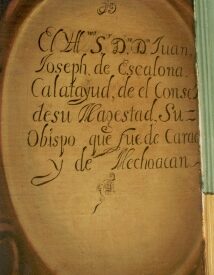 El Yll.mo S.r D.n D.n Juan
Joseph, de Escalona
Calatayud, de el Conse
desu Magestad, Su
Obispo que fue de Carac
y de Mechoacan